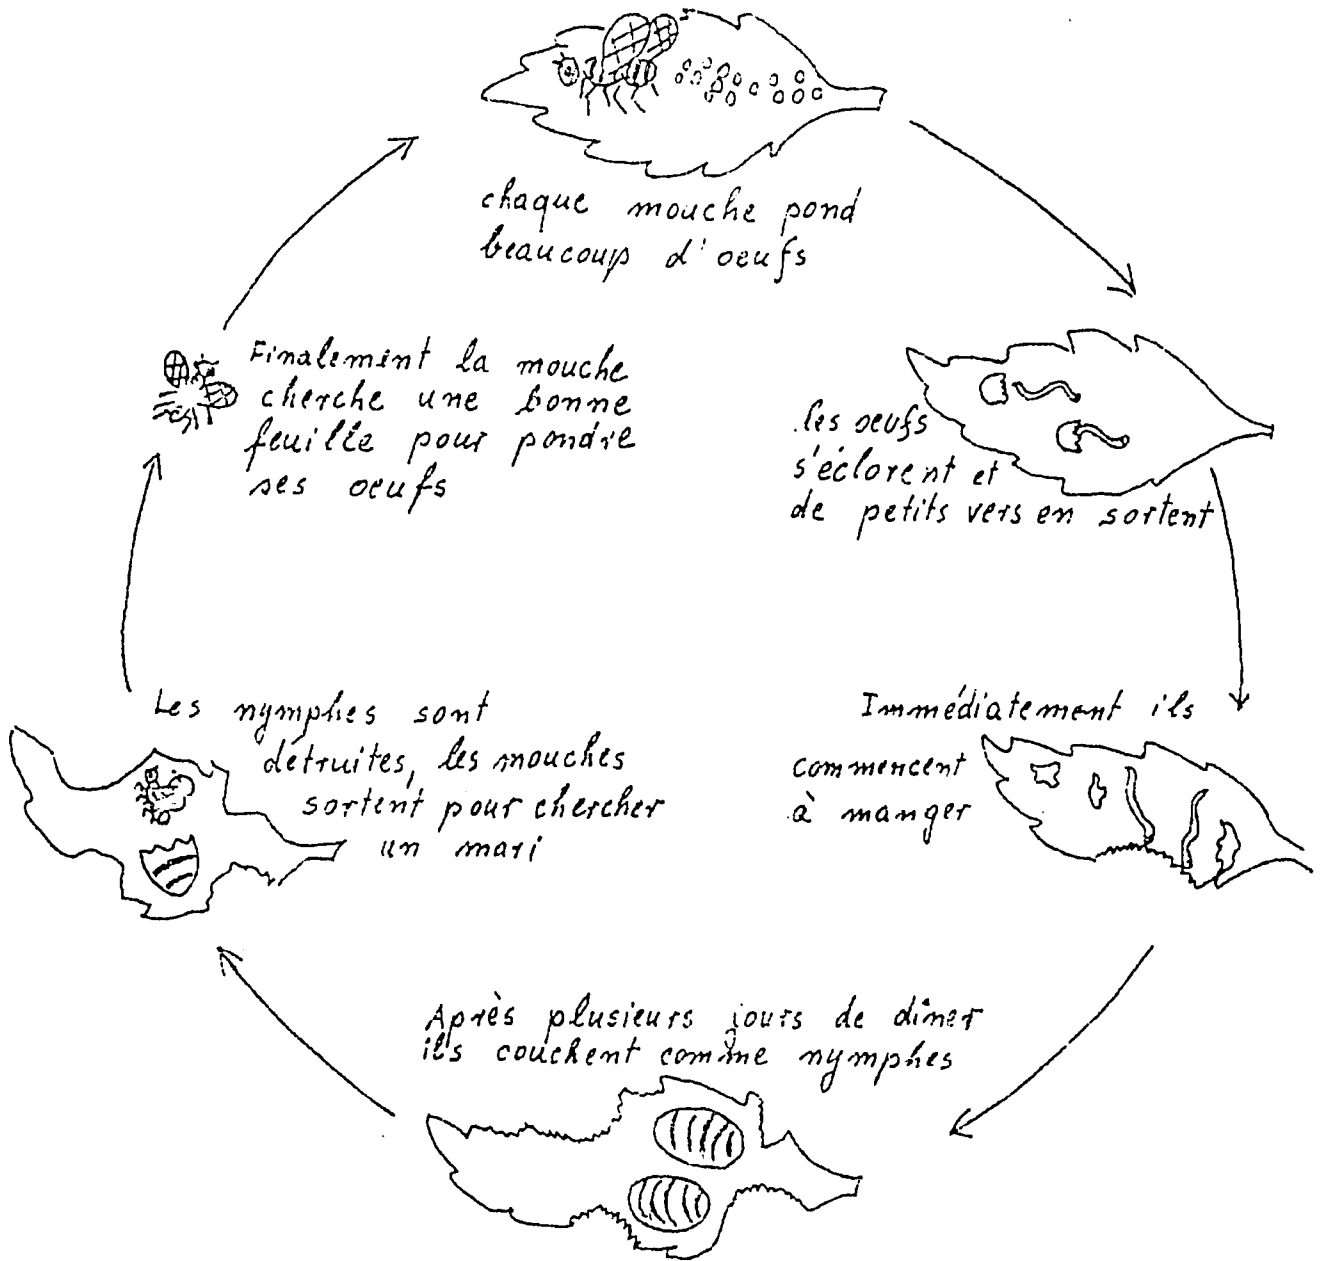 chaque mouche pond
beaucoup d'oeufs
les oeufs
s'éclorent et
de petits vers en sortent
Immédiatement ils
commencent
à manger
Après plusieurs jours de dîner
ils couchent comme nymphes
Les nymphes sont
détruites, les mouches
sortent pour chercher
un mari
Finalement la mouche
cherche une bonne
feuille pour pondre
ses oeufs